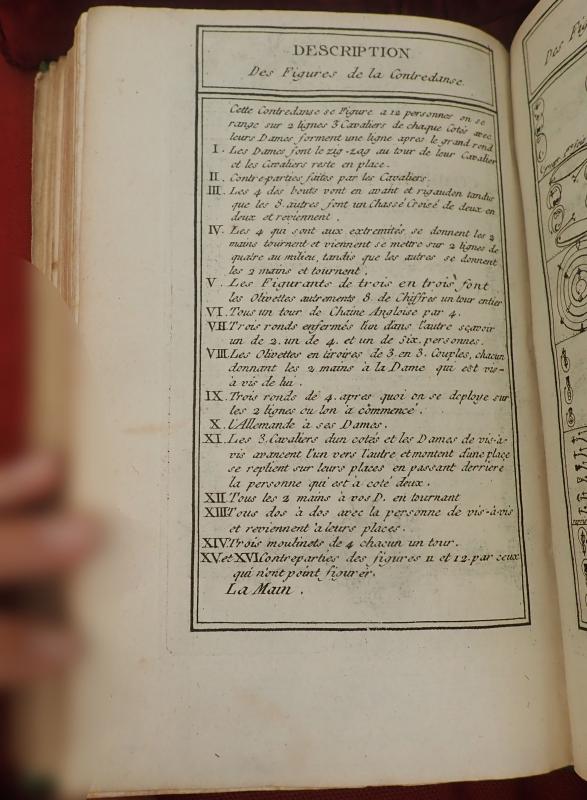 DESCRIPTION
Des Figures de la Contredanse.
Cette Contredanse se Figure a 12 personnes on se
range sur 2 lignes 3 Cavaliers de chaque Cotés avec
leurs Dames forment une ligne apres le grand rond
I. Les Dames font le zig-zag au tour de leur Cavalier
et les Cavaliers reste en place.
II. Contre-parties faites par les Cavaliers.
III. Les 4 des bouts vont en avant et rigaudon tandis
que les 8. autres font un Chassé Croisé de deux en
deux et reviennent.
IV. Les 4 qui sont aux extremités se donnent les 2
mains tournent et viennent se mettre sur 2 lignes de
quatre au milieu, tandis que les autres se donnent
les 2 mains et tournent.
V. Les Figurants de trois en trois font
les Olivettes autrements 8. de Chiffres un tour entier
VI. Tous un tour de Chaine Angloise par 4.
VII. Trois ronds enfermés l'un dans l'autre sçavoir
un de 2. un de 4. et un de Six. personnes.
VIII. Les Olivettes en tiroires de 3. en 3. Couples, chacun
donnant les 2 mains à la Dame qui est vis-
à vis de lui.
IX. Trois ronds de 4. apres quoi on se deploye sur
les 2 lignes ou lon a commencé.
X. L'Allemande à ses Dames.
XI. Les 3. Cavaliers dun cotés et les Dames de vis-à-
vis avancent l'un vers l'autre et montent d'une place
se replient sur leurs places en passant derriere
la personne qui est à coté deux.
XII. Tous les 2 mains à vos D. en tournant
XIII Tous dos à dos avec la personne de vis-à-vis
et reviennent à leurs places.
XIV. Trois moulinets de 4 chacun un tour.
XV. et XVI Contreparties des figures 11 et 12. par ceux
qui n'ont point figurer.
La Main.
Des Fig